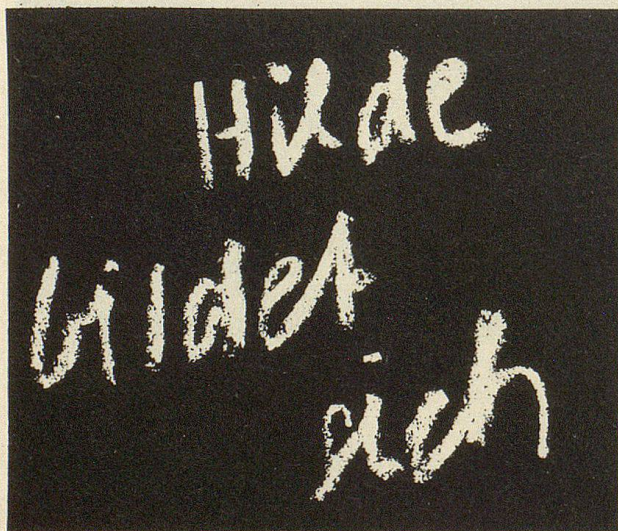 Hilde
bildet
sich